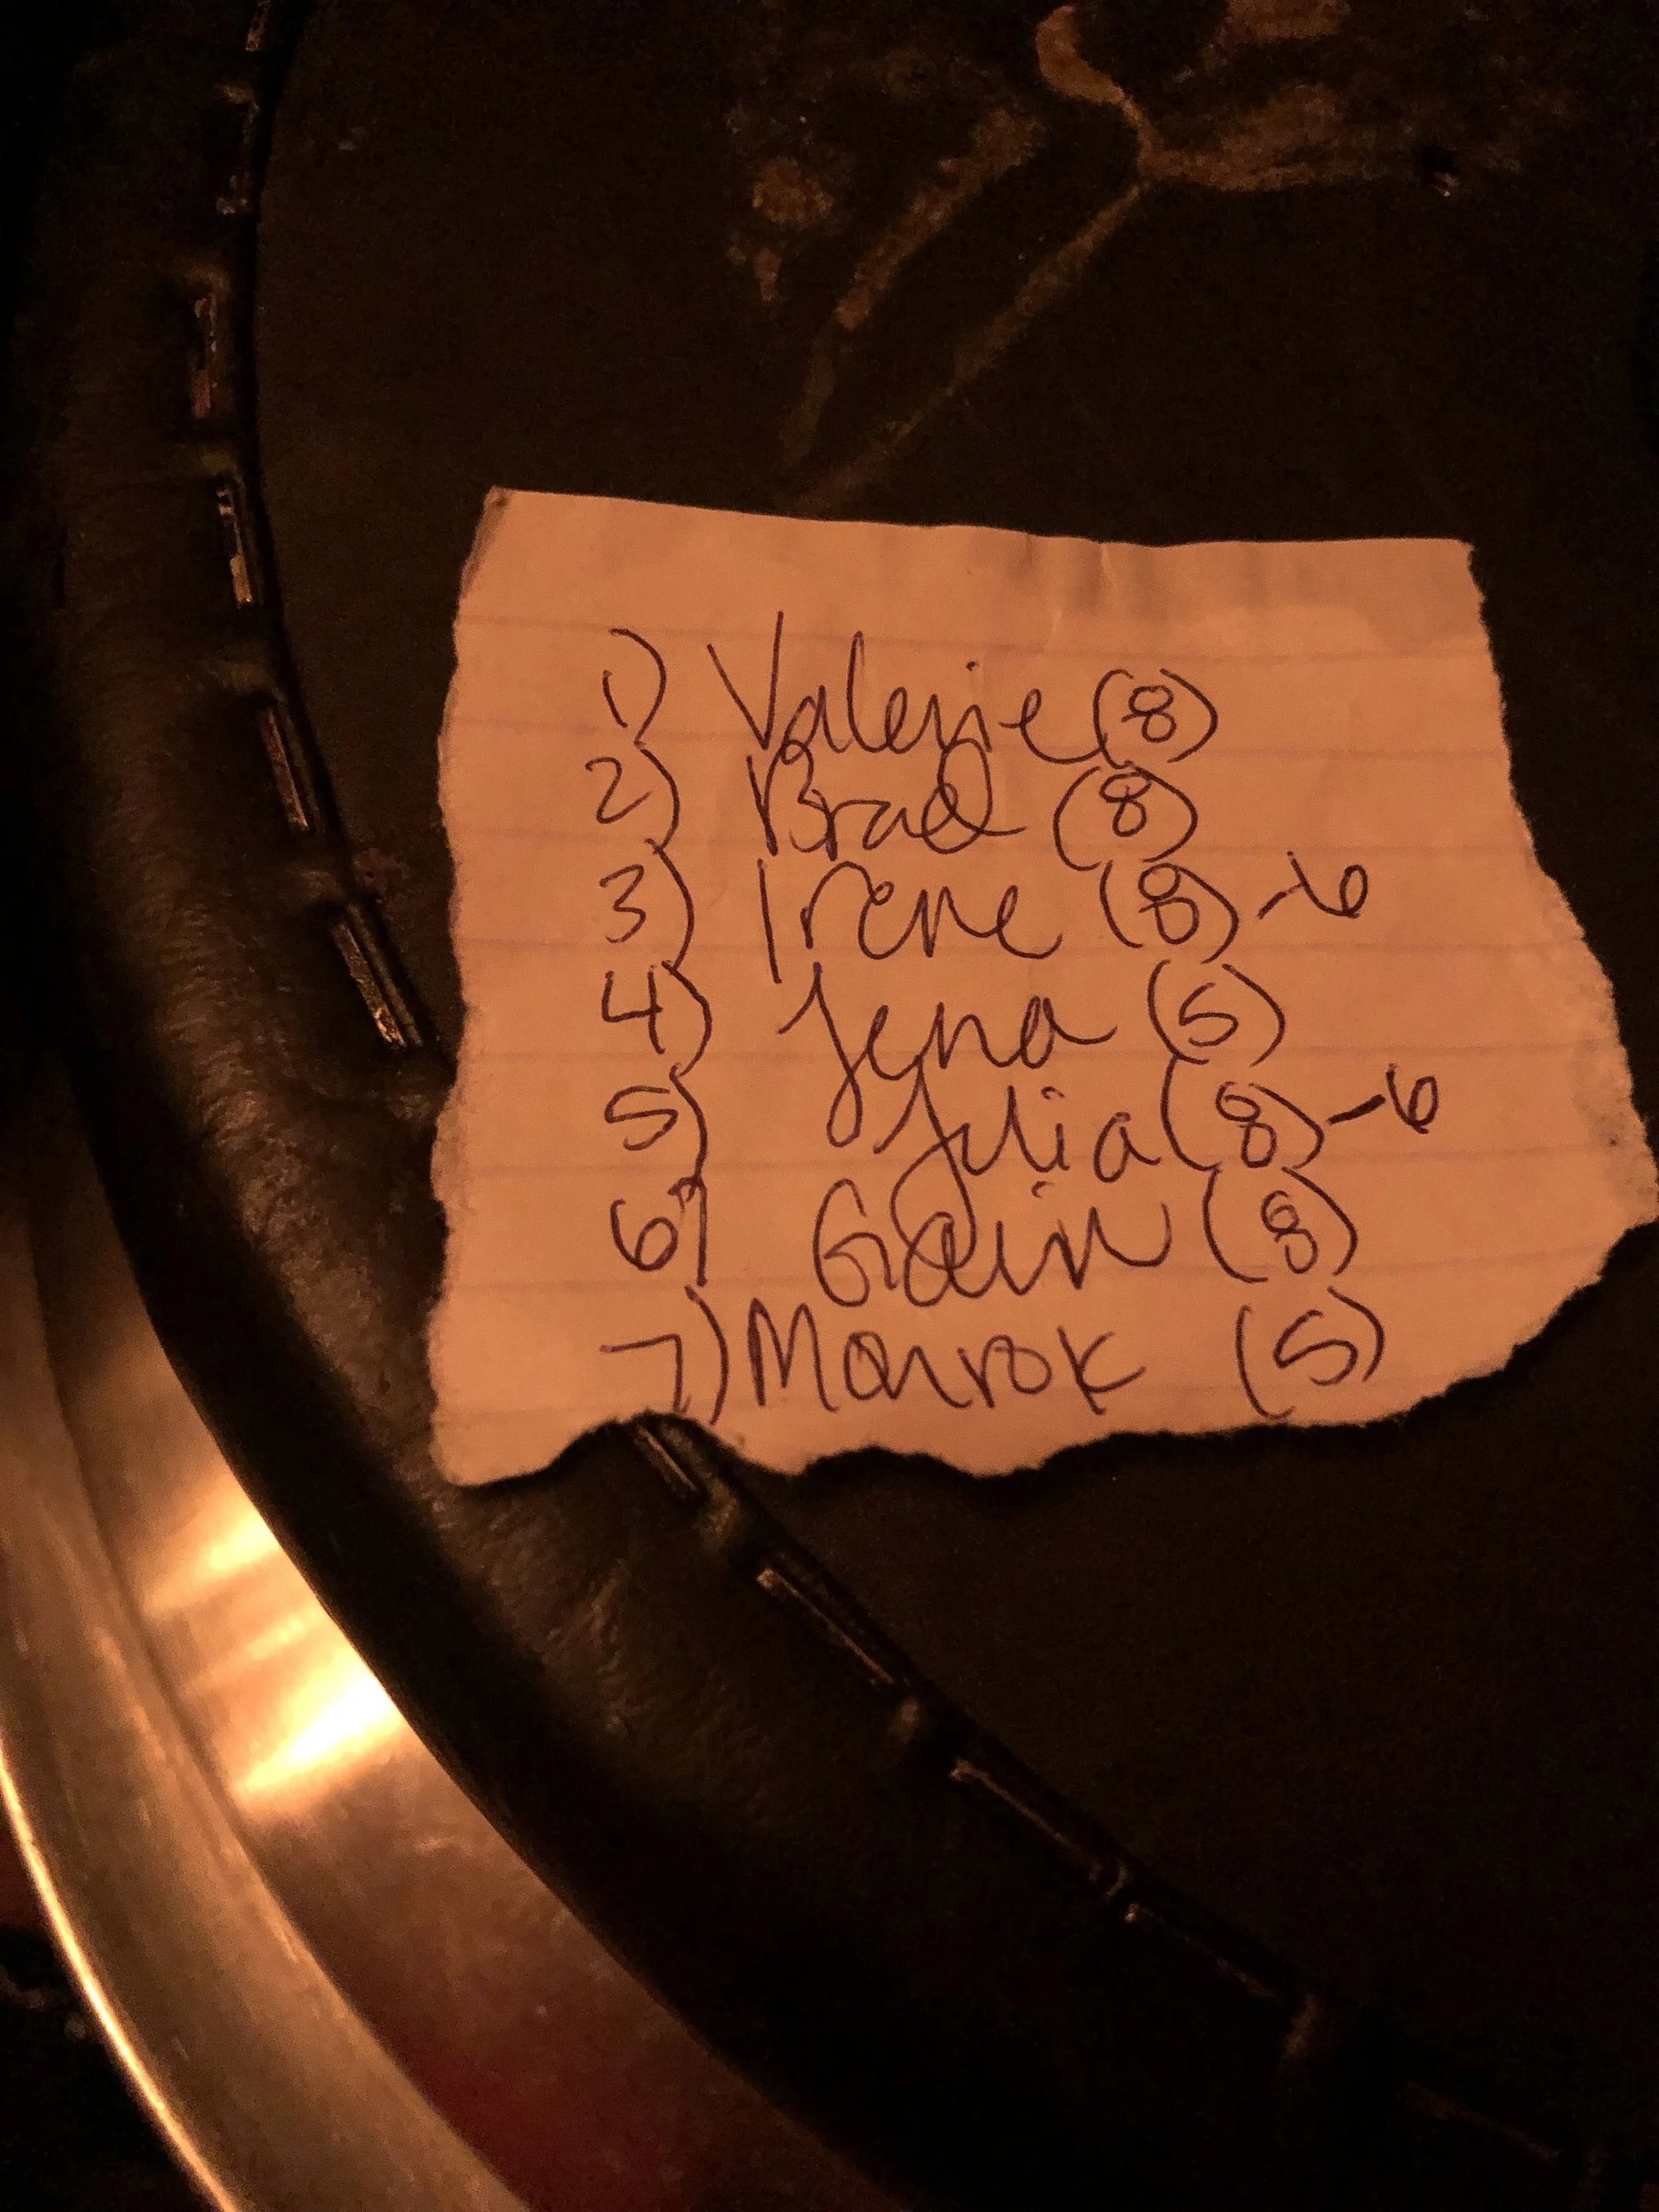 1) Valerie (8)
2) Brad (8)
3) Irene (8) -6
4) Jena (5)
5) Julia (8) -6
6) Gain (8)
7) Monrok (5)